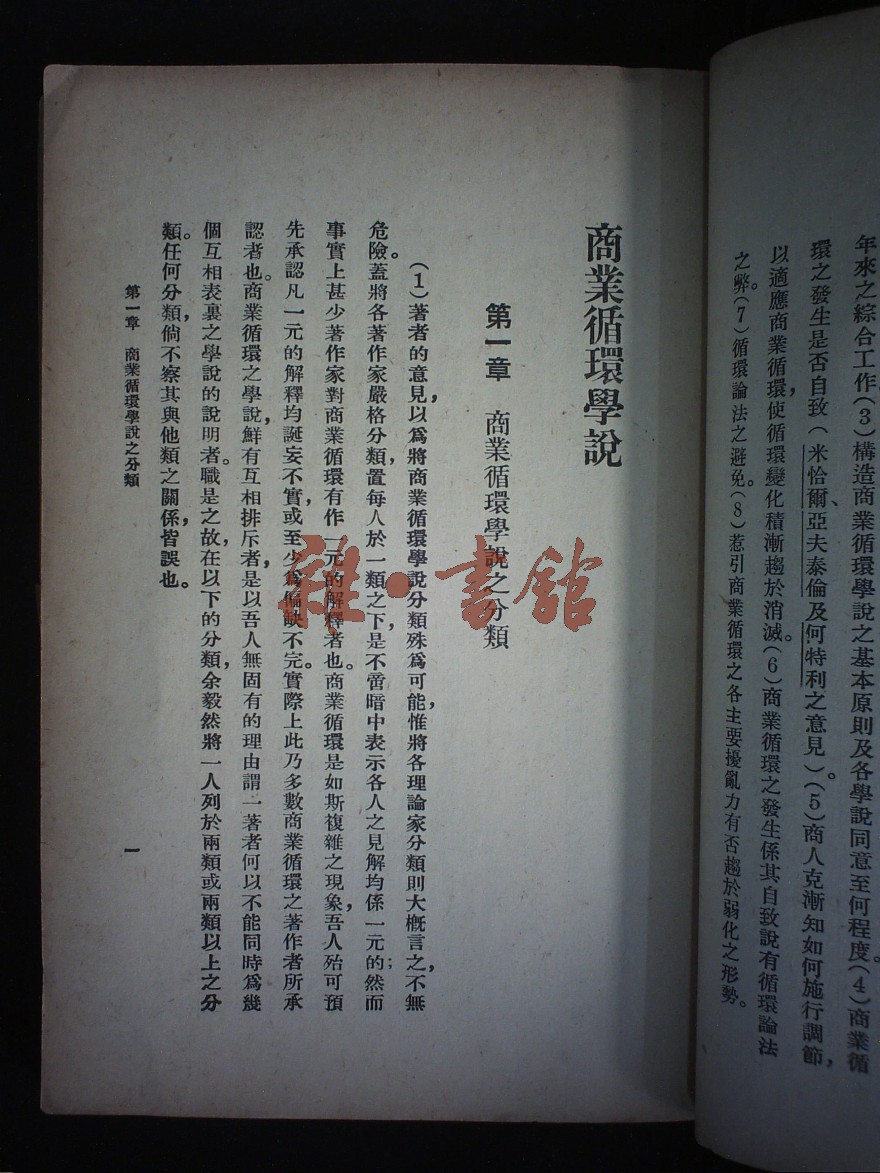 年來之綜合工作(3)構造商業循環學說之基本原則及各學說同意至何程度。(4)商業循
環之發生是否自致(米恰爾、亞夫泰倫及何特利之意見)。(5)商人克漸知如何施行調節，
以適應商業循環，使循環變化積漸趨於消滅。(6)商業循環之發生係其自致說有循環論法
之弊。(7)循環論法之避免。(8)惹引商業循環之各主要擾亂力有否趨於弱化之形勢。
商業循環學說
第一章　商業循環學說之分類
(1)著者的意見，以爲將商業循環學說分類殊爲可能，惟將各理論家分類則大概言之，不無
危險。蓋將各著作家嚴格分類，置每人於一類之下，是不啻暗中表示各人之見解均係一元的；然而
事實上甚少著作家對商業循環有作一元的解釋者也。商業循環是如斯複雜之現象，吾人殆可預
先承認凡一元的解釋均誕妄不實，或至少爲偏缺不完。實際上此乃多數商業循環之著作者所承
認者也。商業循環之學說，鮮有互相排斥者，是以吾人無固有的理由謂一著者何以不能同時爲幾
個互相表裏之學說的說明者。職是之故，在以下的分類，余毅然將一人列於兩類或兩類以上之分
類。任何分類，倘不察其與他類之關係，皆誤也。
第一章　商業循環學說之分類
一
雜·書館